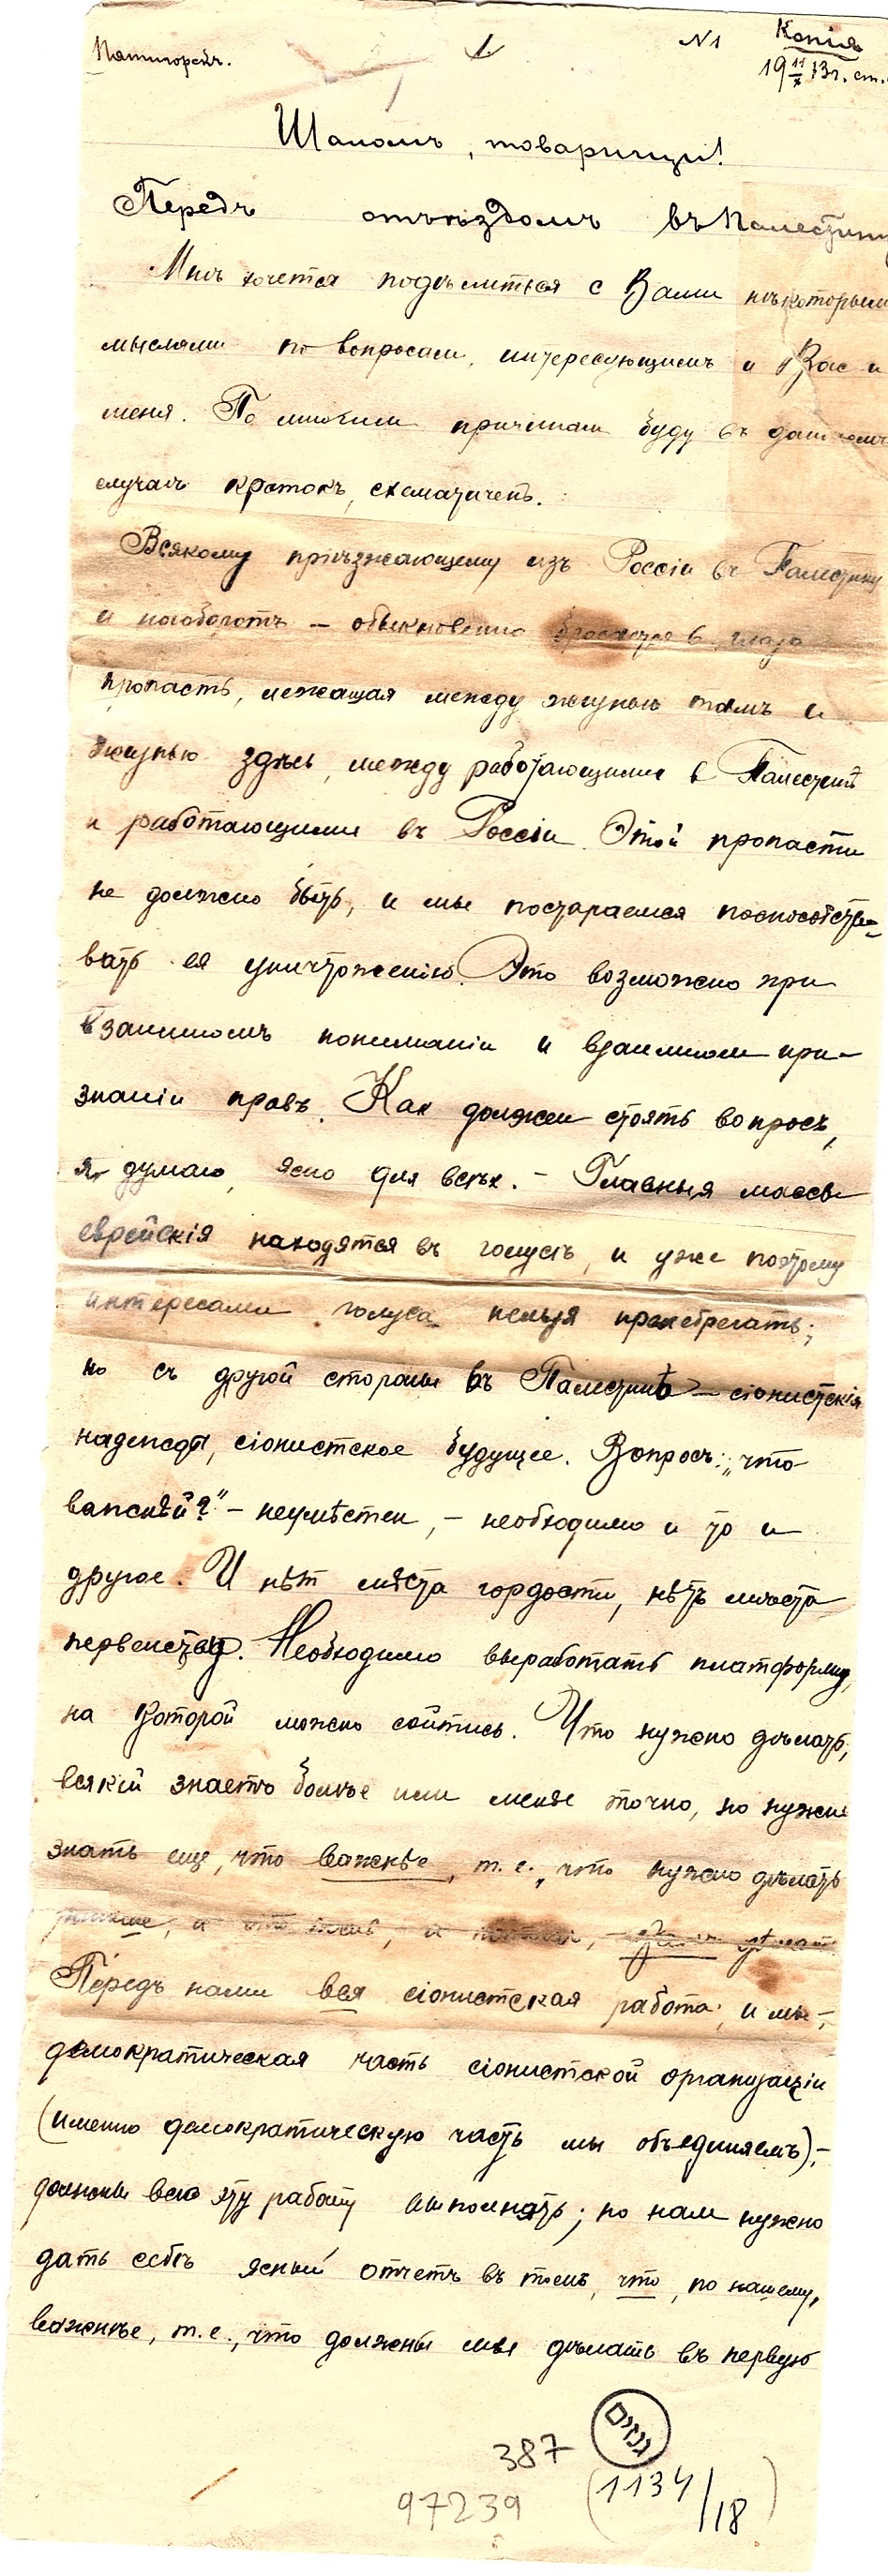 Пятигорскъ.
1.
№1
Копія
19 11/X 13 г. ст.
Шаломъ, товарищи!
Передъ отъѣздомъ въ Палестину
Мнѣ хочется подѣлиться с Вами нѣкоторыми
мыслями по вопросам, интересующимъ и Вас и
меня. По многим причинам буду въ данномъ
случаѣ кратокъ, схематиченъ.
Всякому пріѣзжающему изъ Россіи въ Палестину
и наоборотъ — обыкновенно бросается в глаза
пропасть, лежащая между жизнью тамъ и
жизнью здѣсь, между работающими в Палестинѣ
и работающими въ Россіи. Этой пропасти
не должно быть, и мы постараемся поспособство-
вать ея уничтоженію. Это возможно при
взаимномъ пониманіи и взаимном при-
знаніи правъ. Как должен стоять вопросъ,
я, думаю, ясно для всѣх. — Главныя массы
еврейскія находятся въ голусѣ, и уже поэтому
интересами голуса нельзя пренебрегать;
но съ другой стороны въ Палестинѣ — сіонистскія
надежды, сіонистское будущее. Вопросъ: „что
важнѣй?" — неумѣстен, — необходимо и то и
другое. И нѣт мѣста гордости, нѣтъ мѣста
первенству. Необходимо выработать платформу,
на которой можно сойтись. Что нужно дѣлать,
всякій знаетъ болѣе или менѣе точно, но нужно
знать еще, что важнѣе, т. е. что нужно дѣлать
раньше, и что
Передъ нами вся сіонистская работа; и мы, —
демократическая часть сіонистской организаціи
(именно демократическую часть мы объединяемъ), —
должны всю эту работу выполнять; но нам нужно
дать себѣ ясный отчетъ въ томъ, что, по нашему,
важнѣе, т. е., что должны мы дѣлать въ первую
גנזים
387
97239
(1134/18)